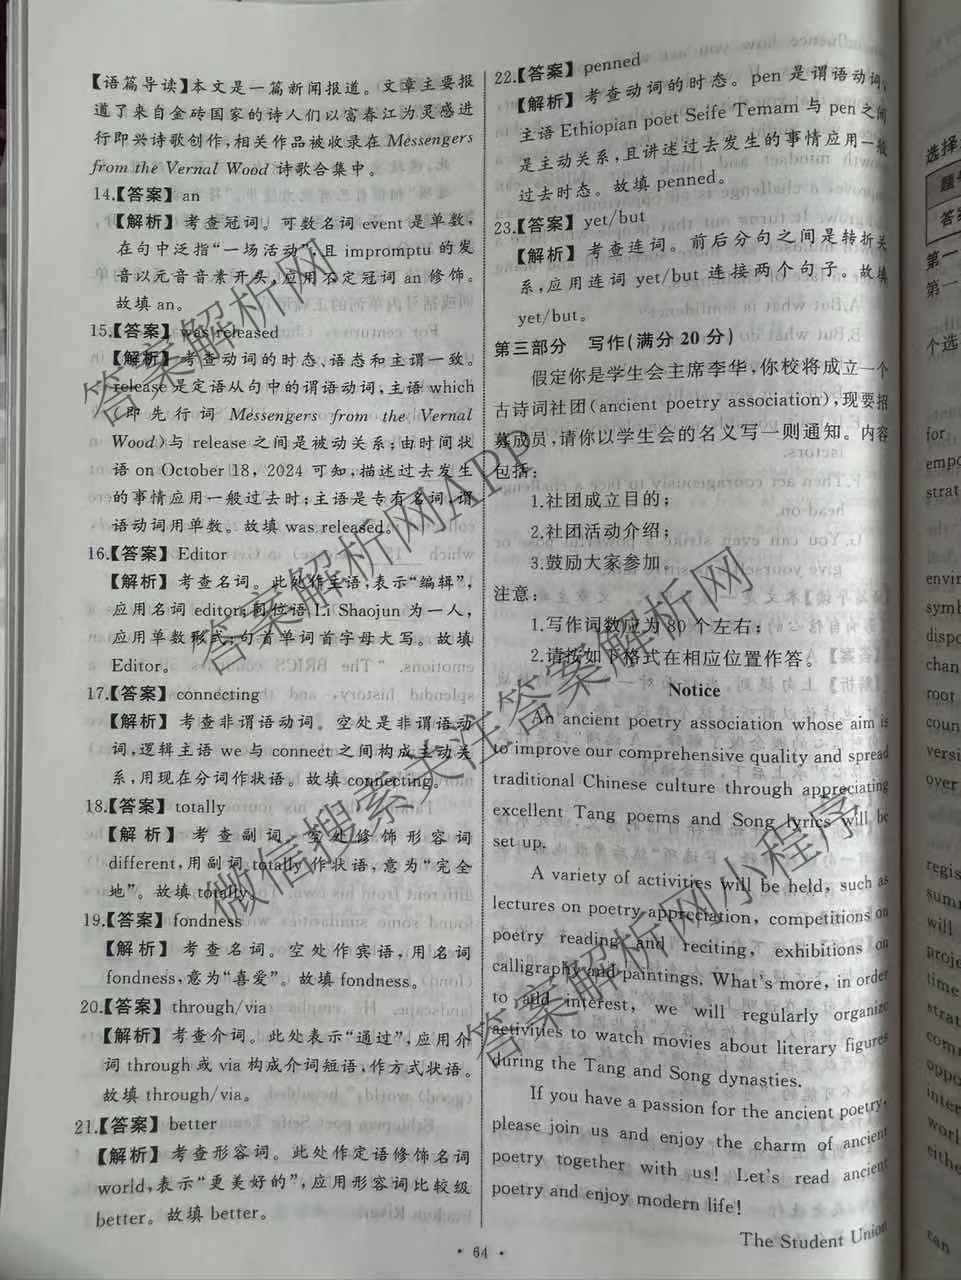 【语篇导读】本文是一篇新闻报道。文章主要报
道了来自金砖国家的诗人们以富春江为灵感进
行即兴诗歌创作,相关作品被收录在 Messengers
from the Vernal Wood 诗歌合集中。
14.【答案】an
【解析】考查冠词。可数名词 event 是单数,
在句中泛指“一场活动”,且 impromptu 的发
音以元音音素开头,应用不定冠词 an 修饰。
故填 an。
15.【答案】was released
【解析】考查动词的时态、语态和主谓一致。
release 是定语从句中的谓语动词,主语 which
(即先行词 Messengers from the Vernal
Wood)与 release 之间是被动关系;由时间状
语 on October 18, 2024 可知,描述过去发生
的事情应用一般过去时;主语是专有名词,谓
语动词用单数。故填 was released。
16.【答案】Editor
【解析】考查名词。此处作主语,表示“编辑”,
应用名词 editor;同位语 Li Shaojun 为一人,
应用单数形式;句首单词首字母大写。故填
Editor。
17.【答案】connecting
【解析】考查非谓语动词。空处是非谓语动
词,逻辑主语 we 与 connect 之间构成主动关
系,用现在分词作状语。故填 connecting。
18.【答案】totally
【解析】考查副词。空处修饰形容词
different,用副词 totally 作状语,意为“完全
地”。故填 totally。
19.【答案】fondness
【解析】考查名词。空处作宾语,用名词
fondness,意为“喜爱”。故填 fondness。
20.【答案】through/via
【解析】考查介词。此处表示“通过”,应用介
词 through 或 via 构成介词短语,作方式状语。
故填 through/via。
21.【答案】better
【解析】考查形容词。此处作定语修饰名词
world,表示“更美好的”,应用形容词比较级
better。故填 better。
22.【答案】penned
【解析】考查动词的时态。pen 是谓语动词,
主语 Ethiopian poet Seife Temam 与 pen 之间
是主动关系,且讲述过去发生的事情应用一般
过去时态。故填 penned。
23.【答案】yet/but
【解析】考查连词。前后分句之间是转折关
系,应用连词 yet/but 连接两个句子。故填
yet/but。
第三部分 写作(满分 20 分)
假定你是学生会主席李华,你校将成立一个
古诗词社团(ancient poetry association),现要招
募成员,请你以学生会的名义写一则通知。内容
包括:
1.社团成立目的;
2.社团活动介绍;
3.鼓励大家参加。
注意:
1.写作词数应为 80 个左右;
2.请按如下格式在相应位置作答。
Notice
An ancient poetry association whose aim is
to improve our comprehensive quality and spread
traditional Chinese culture through appreciating
excellent Tang poems and Song lyrics will be
set up.
A variety of activities will be held, such as
lectures on poetry appreciation, competitions on
poetry reading and reciting, exhibitions on
calligraphy and paintings. What's more, in order
to add interest, we will regularly organize
activities to watch movies about literary figures
during the Tang and Song dynasties.
If you have a passion for the ancient poetry,
please join us and enjoy the charm of ancient
poetry together with us! Let's read ancient
poetry and enjoy modern life!
The Student Union
· 64 ·
答案解析网
答案解析网APP
微信搜索关注答案解析网
答案解析网小程序
选择
答案
第一
第一
个选
for
empo
strat
envi
symb
dispo
chan
root
coun
versi
over
regis
summ
will
proje
time
strat
com
oppo
inter
worl
eithe
can